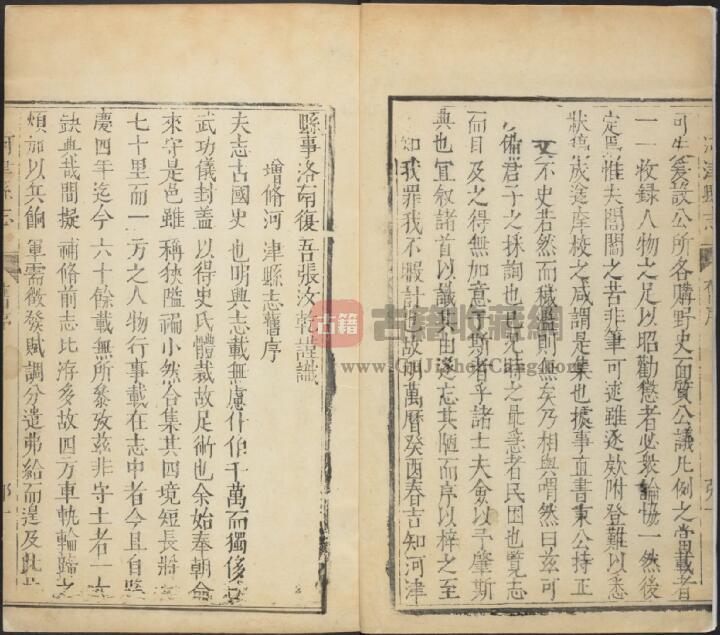 可
設公所各購野史面質公議凡例之當載者
一一收録人物之足以昭勸懲者必衆論協一然後
定焉惟夫閭閻之苦非筆可述雖逐欵附登難以悉
狀稿成送庠校之咸謂是集也據事直書秉公持正
文不史若然而穢濫則無矣乃相與喟然曰兹可
備君子之採詢也已兄時之最急者民困也覽志
而目及之得無加意于斯者乎諸士夫僉以予肇斯
典也宜叙諸首以識其由遂忘其陋而序以梓之至
知我罪我不暇計也故明萬曆癸酉春吉知河津
縣事洛南復吾張汝乾謹識
增修河津縣志舊序
夫志古國史也明興志載無慮什伯千萬而獨侈
武功儀封蓋以得史氏體裁故足術也余始奉朝命
來守是邑雖稱狹隘褊小然合集其四境短長將
七十里而一方之人物行事載在志中者今且自
慶四年迄今六十餘載無所參攷兹非守土者一大
缺典哉間擬補修前志比洊多故四方車軌輪蹄之
煩加以兵餉軍需徵發賦調分遣弗給而遑及此
河津縣志
舊序
古籍
古籍收藏網
www.GuJiShouCang.com